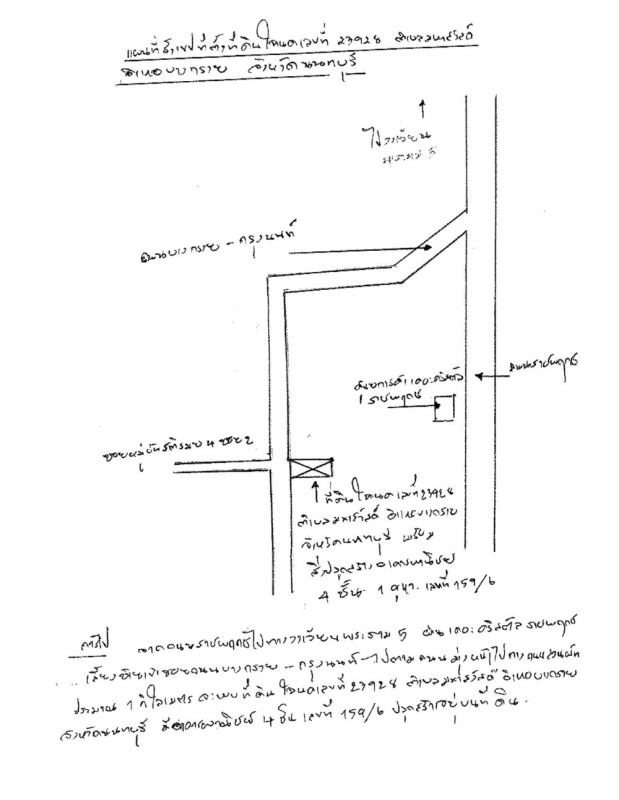 แผนที่สังเขปที่ตั้งที่ดินโฉนดเลขที่ 23928 ตำบลมหาสวัสดิ์
อำเภอบางกรวย จังหวัดนนทบุรี
ไปวงเวียน
พระราม 5
ถนนบางกรวย - กรุงนนท์
ถนนราชพฤกษ์
ศูนย์การค้าเดอะคริสตัล
ราชพฤกษ์
4 ซอย 2
ที่ดินโฉนดเลขที่ 23928
ตำบลมหาสวัสดิ์ อำเภอบางกรวย
จังหวัดนนทบุรี พร้อม
สิ่งปลูกสร้างอาคารพาณิชย์
4 ชั้น 1 คูหา เลขที่ 159/6
การไป จากถนนราชพฤกษ์ไปทางวงเวียนพระราม 5 ผ่านเดอะคริสตัล ราชพฤกษ์
เลี้ยวซ้ายเข้าซอยถนนบางกรวย - กรุงนนท์ ไปตามถนนมุ่งหน้าไปทางถนน
ประมาณ 1 กิโลเมตร จะพบที่ดินโฉนดเลขที่ 23928 ตำบลมหาสวัสดิ์ อำเภอบางกรวย
จังหวัดนนทบุรี มีอาคารพาณิชย์ 4 ชั้น เลขที่ 159/6 ปลูกสร้างอยู่บนที่ดิน.